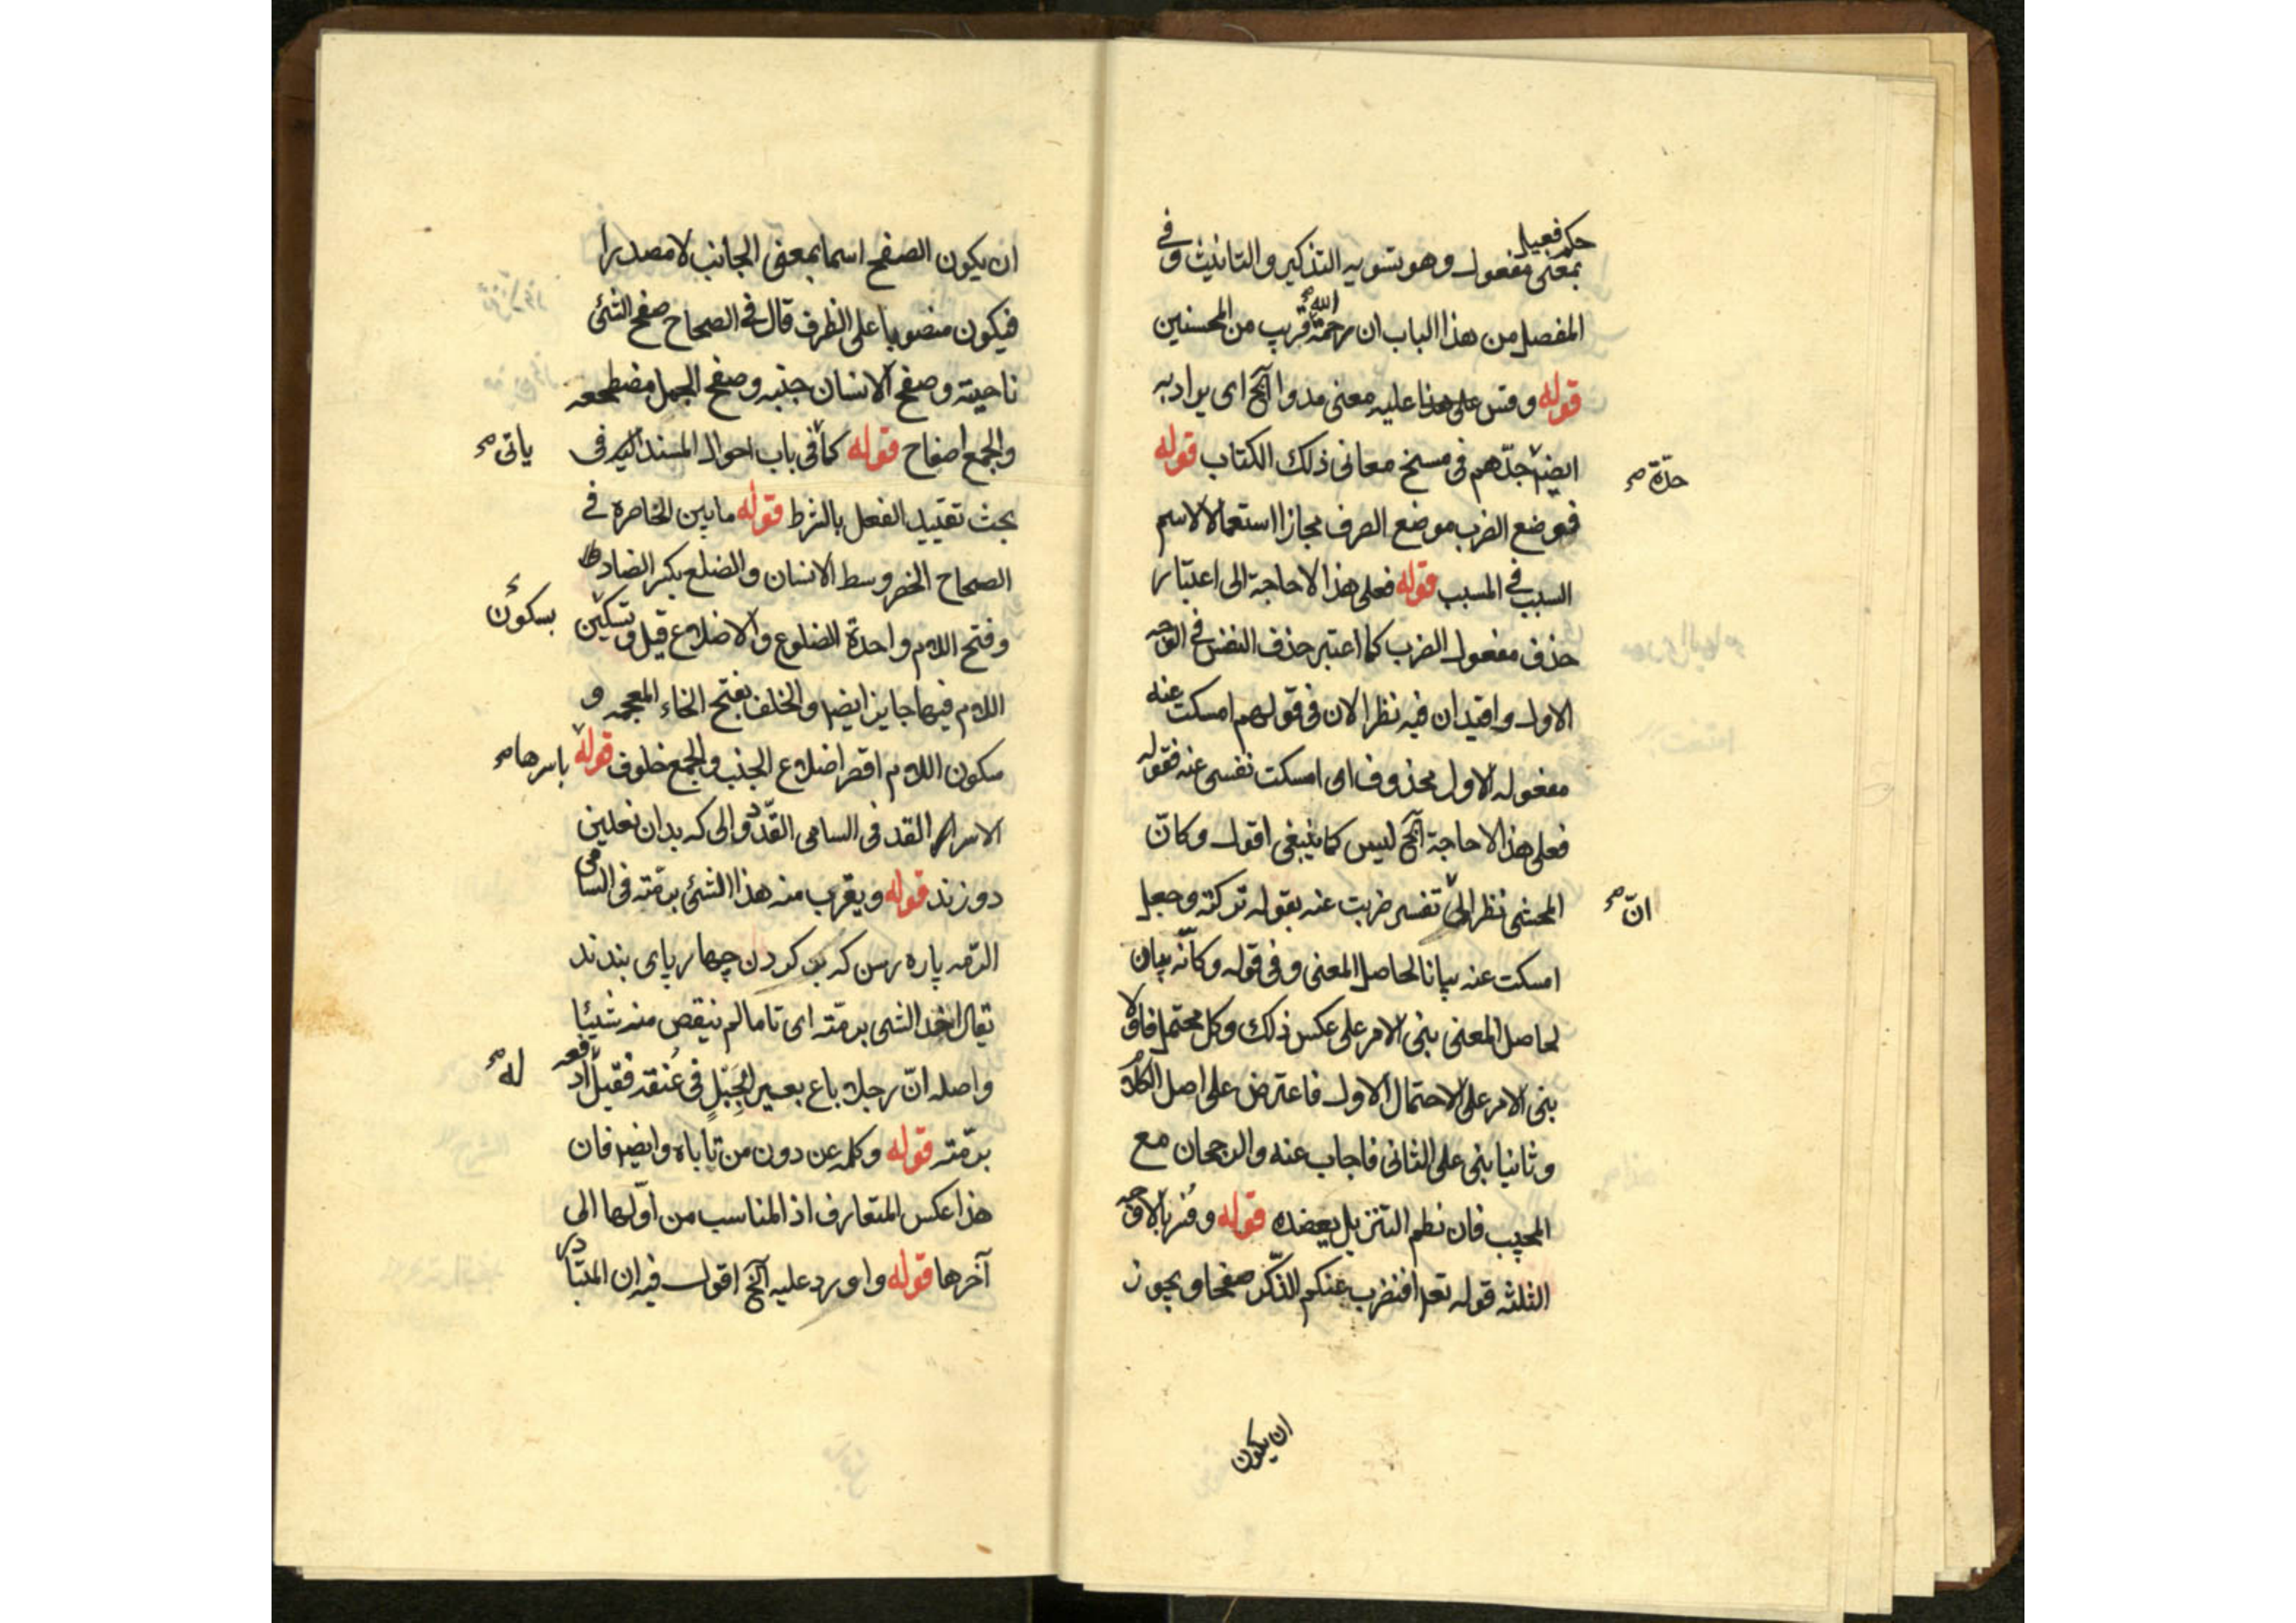 حكم فعيل
بمعنى مفعول وهو تسويه التذكير والتانيث وفى
المفصل من هذا الباب ان رحمة الله قريب من المحسنين
قوله وقس على هذا عليه معنى مدوا آلخ اى يراد به
ايضا جدّهم فى مسخ معانى ذلك الكتاب قوله
حدّة صح
فوضع الضرب موضع الصرف مجازا استعمالا لاسم
السبب فى المسبب قوله فعلى هذا لا حاجة الى اعتبار
حذف مفعول الضرب كما اعتبر حذف النفس فى الوجه
الاول وافيد ان فيه نظر الان فى قولهم امسكت عنه
مفعوله الاول محذوف اى امسكت نفسى عنه فقوله
فعلى هذا لا حاجة آلخ ليس كما ينبغى اقول وكانّ
المحشى نظر الى تفسير ضربت عنه بقوله تركته وجعل
انّ صح
امسكت عنه بيانا لحاصل المعنى وفى قوله وكانّه بيان
لحاصل المعنى بنى الامر على عكس ذلك وكل محتمل فاولا
بنى الامر على الاحتمال الاول فاعترض على اصل الكلام
وثانيا بنى على الثانى فاجاب عنه والرجحان مع
المجيب فان نظم التنزيل يعضده قوله وفسّر بالاوجه
الثلثه قوله تعا افنضرب عنكم الذّكر صفحا ويجوز
ان يكون
ان يكون الصفح اسما بمعنى الجانب لا مصدرا
فيكون منصوبا على الظرف قال فى الصحاح صفح الشئ
ناحيته وصفح الانسان جنبه وصفح الجبل مضطجعه
والجمع اصفاح قوله كما فى باب احوال المسند اليه فى
ياتى صح
بحث تقييد الفعل بالشرط قوله ما بين الخاصرة فى
الصحاح الخصر وسط الانسان والضلع بكسر الضاد
وفتح اللام واحدة الضلوع والاضلاع قيل وتسكين
بسكون
اللام فيها جايز ايضا والخلف بفتح الخاء المعجمه و
سكون اللام اقصر اضلاع الجنب والجمع خلوف قوله
باسرها صح
الاسر القد فى السامى القدّ دوالى كه بدان نعلين
دوزند قوله ويقرب منه هذا الشئ برمّته فى السامى
الرّمه پاره رسن كه بر كردن چهارپاى بندند
يقال اخذ الشى برمّته اى تاما لم ينقص منه شيئا
واصله انّ رجلا باع بعيرا بحَبْلٍ فى عُنقه فقيل ادفعه
له صح
برمّته قوله وكلمه عن دون من تاباه وايضا فان
هذا عكس المتعارف اذ المناسب من اوّلها الى
آخرها قوله واورد عليه آلخ اقول فيه ان المتبادر